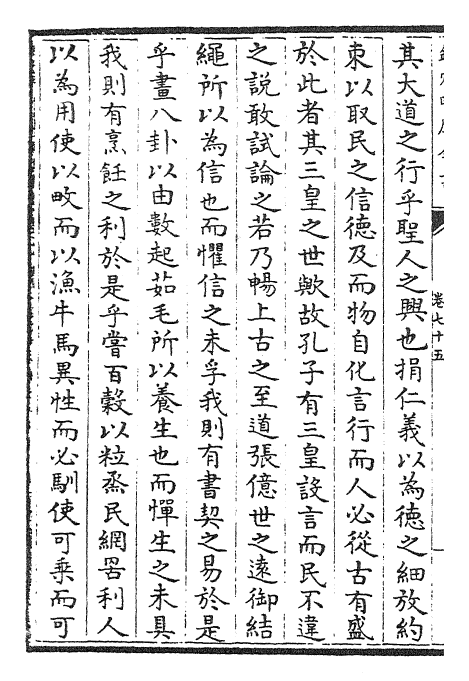 卷七十五
其大道之行乎聖人之興也捐仁義以為德之細放約
束以取民之信德及而物自化言行而人必從古有盛
於此者其三皇之世歟故孔子有三皇設言而民不違
之說敢試論之若乃暢上古之至道張億世之遠御結
繩所以為信也而懼信之未孚我則有書契之易於是
乎畫八卦以由數起茹毛所以養生也而憚生之未具
我則有烹飪之利於是乎嘗百穀以粒烝民網罟利人
以為用使以畋而以漁牛馬異性而必馴使可乗而可